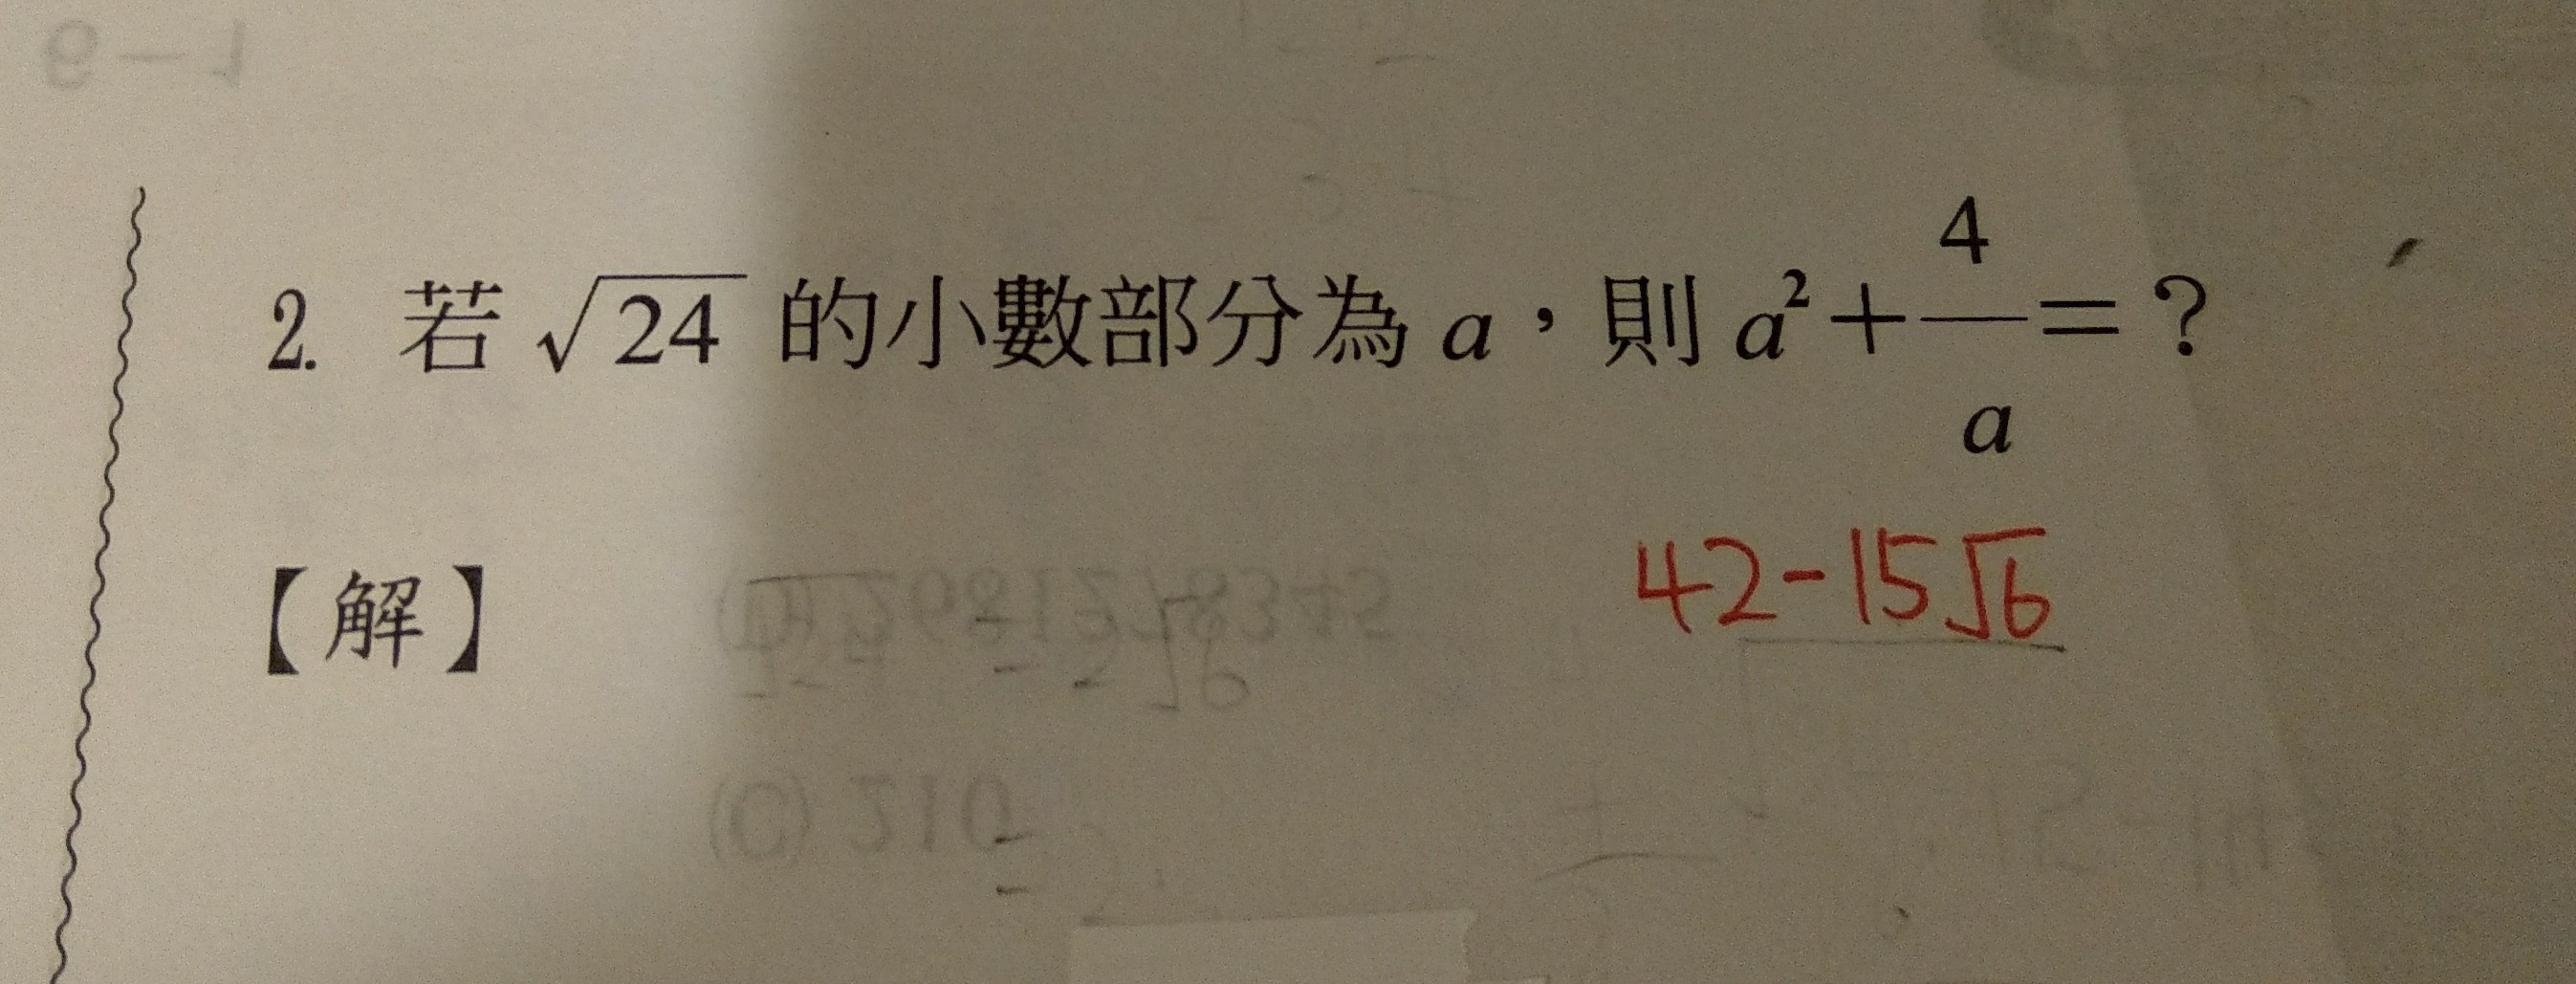 2. 若 √24 的小數部分為 a，則 a²+4/a=？
42-15√6
【解】